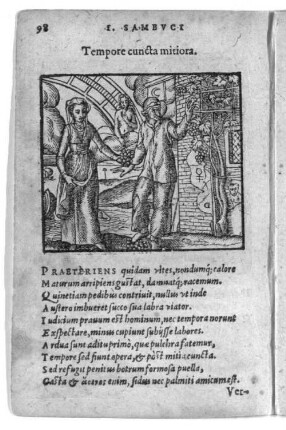 98 I. SAMBVCI
Tempore cuncta mitiora.
PRAETERIENS quidam vites, nondumq; calore
Maturum arripiens gustat, damnatq; racemum.
Quinetiam pedibus contriuit, nullus vt inde
Austero imbueret succo sua labra viator.
Iudicium prauum est hominum, nec tempora norunt
Exspectare, minus cupiunt subiisse labores.
Ardua sunt aditu primò, quae pulchra fatemur,
Tempore sed fiunt opera, & pòst mitia cuncta.
Sed refugit penitus botrum formosa puella,
Casta & enim, sidus nec palmiti amicum est.
Ver-